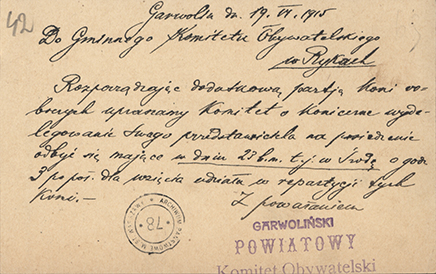 42
Garwolin dn. 19. VI. 1915
Do Gminnego Komitetu Obywatelskiego
w Rykach
Rozporządzając dodatkową partją koni ro-
boczych upraszamy Komitet o konieczne wyde-
legowanie swego przedstawiciela na posiedzenie
odbyć się mające w dniu 23 b.m. t.j. w Środę o godz
3 po poł. dla wzięcia udziału w repartycji tych
koni.—
Z poważaniem
ARCHIWUM PAŃSTWOWE M.ST. WARSZAWY
78
GARWOLIŃSKI
POWIATOWY
Komitet Obywatelski